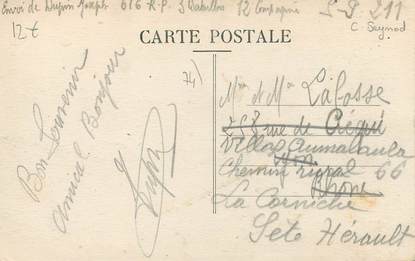 Envoi de Dupin Joseph 616 R.P. 3 Bataillon 12 Compagnie S.P. 211
12€
C. Seynod
CARTE POSTALE
74)
Bon Souvenir
amical Bonjour
Dupin
Mr et Mme Lafosse
258 rue de Créqui
Villa
Lyon
Chemin rural 66
Rhône
La Corniche
Sète Hérault